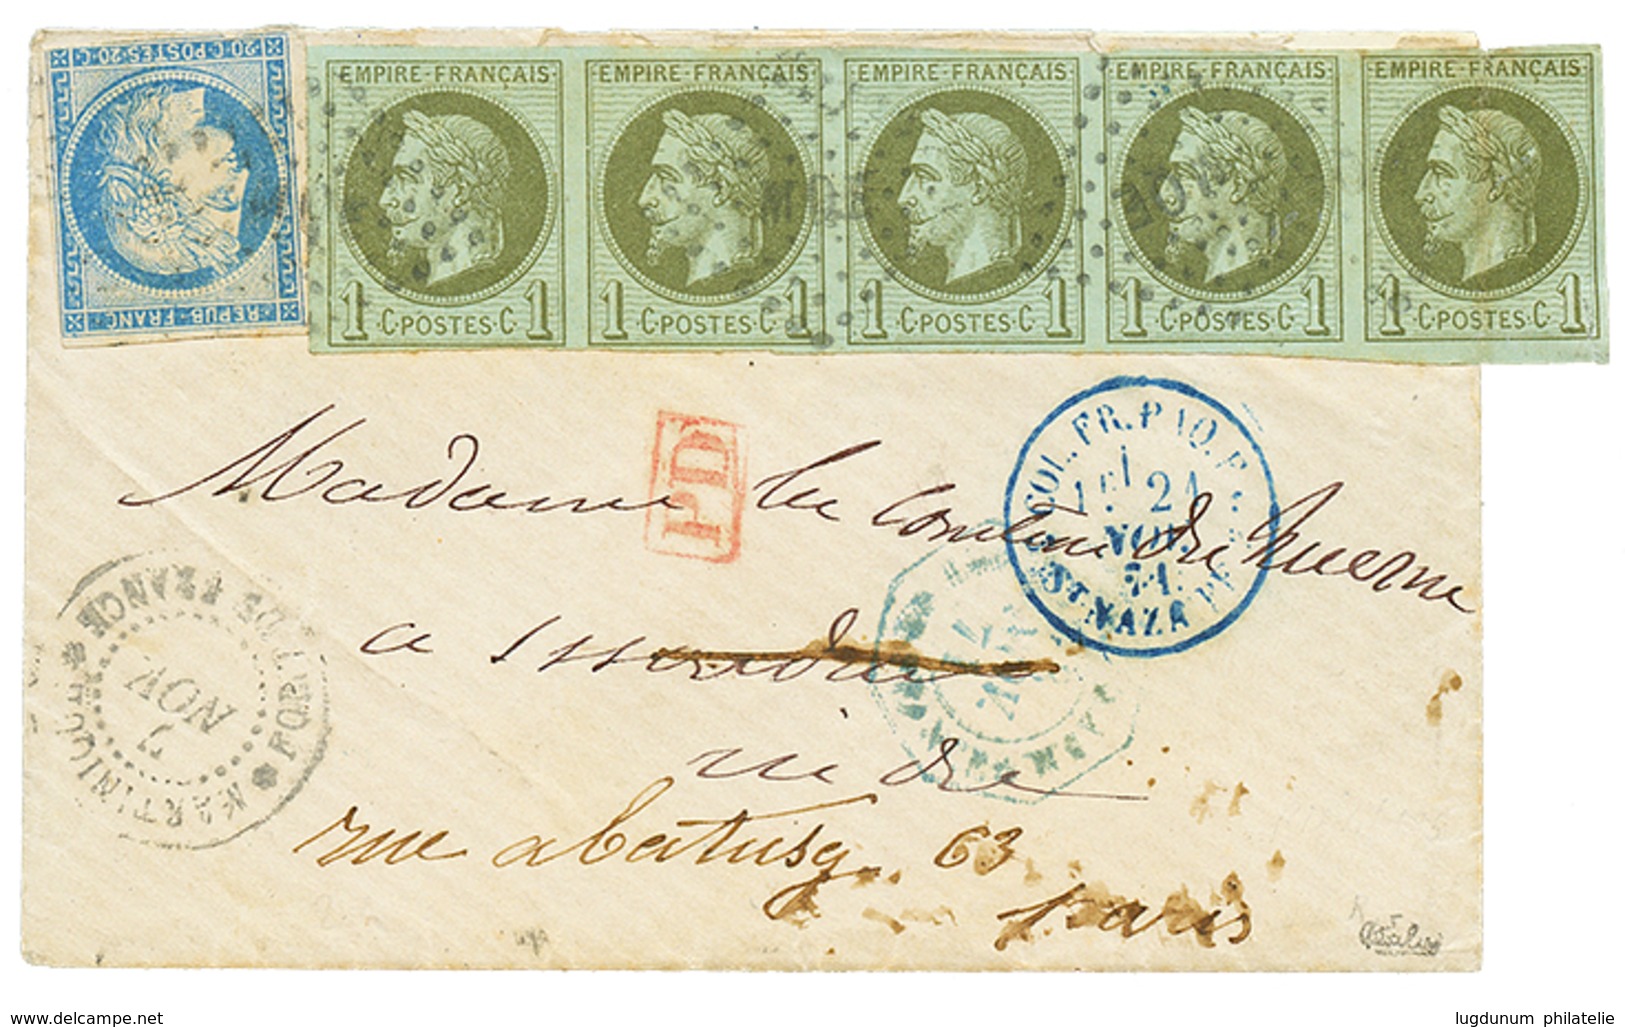 20·C·POSTES·20·C
REPUB·FRANC
EMPIRE·FRANÇAIS
1 ·C·POSTES·C· 1
EMPIRE·FRANÇAIS
1 ·C·POSTES·C· 1
EMPIRE·FRANÇAIS
1 ·C·POSTES·C· 1
EMPIRE·FRANÇAIS
1 ·C·POSTES·C· 1
EMPIRE·FRANÇAIS
1 ·C·POSTES·C· 1
MQE
MQE
PD
COL. FR. PAQ. F.
21
NOV.
71
ST NAZA
Madame la
a
rue
rue abatusq. 63
paris
MARTINIQUE
FORT DE FRANCE
7
NOV
www.delcampe.net
lugdunum philatelie